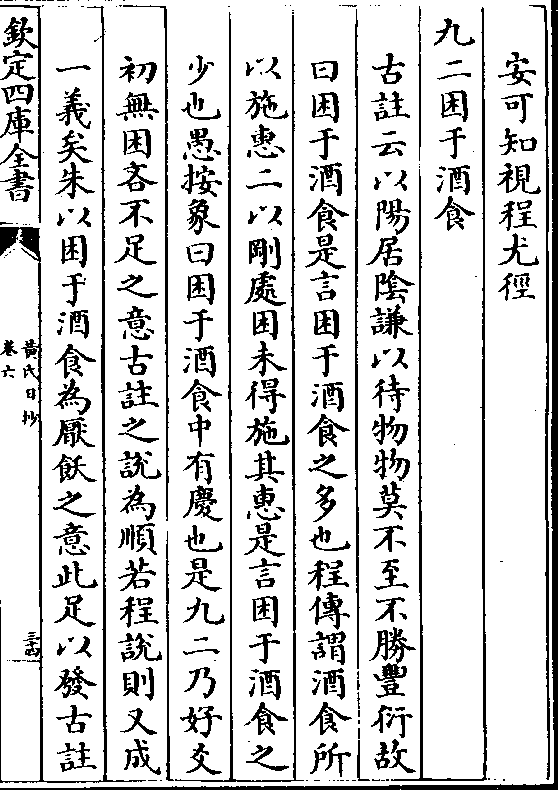 安可知視程尤徑
九二困于酒食
古註云以陽居陰謙以待物物莫不至不勝豐衍故
曰困于酒食是言困于酒食之多也程傳謂酒食所
以施惠二以剛處困未得施其惠是言困于酒食之
少也愚按象曰困于酒食中有慶也是九二乃好爻
初無困吝不足之意古註之說為順若程說則又成
一義矣朱以困于酒食為厭飫之意此足以發古註
欽定四庫全書
黃氏日抄
卷六
三十四